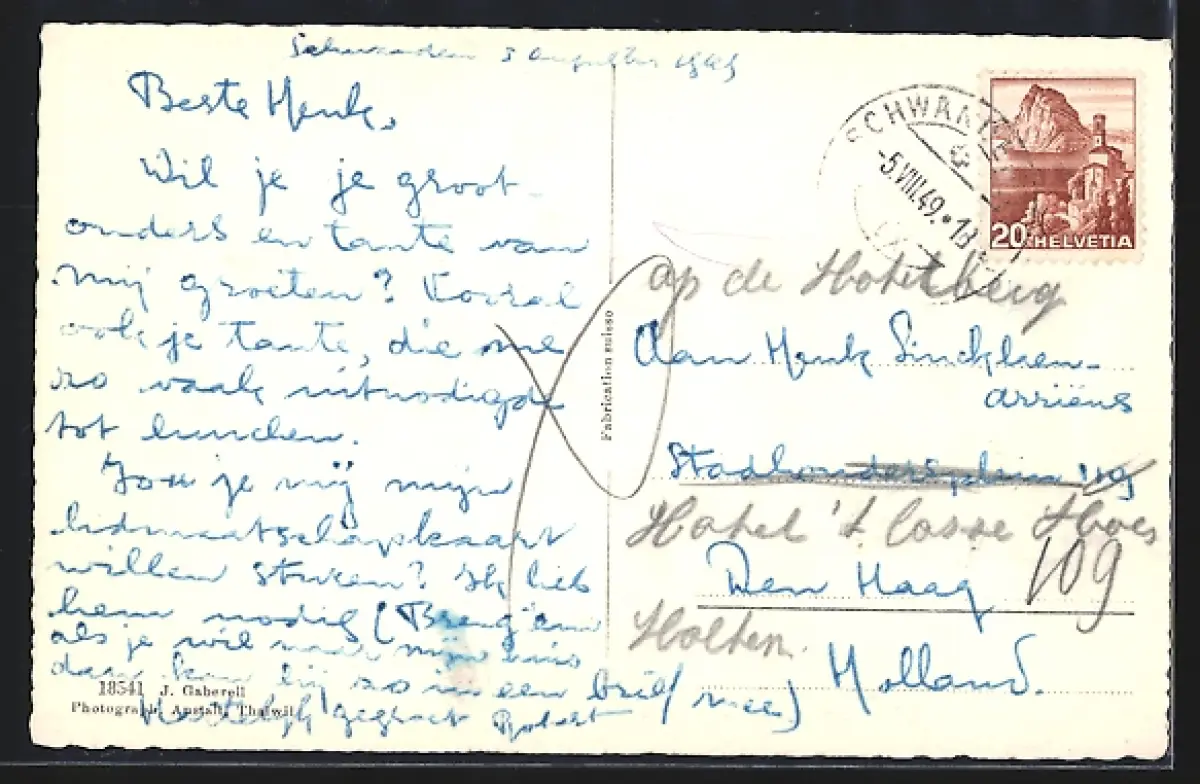 Schwanden 3 augustus 1949
Beste Henk,
Wil je je groot-
ouders en tante van
mij groeten? Vooral
ook je tante, die me
zo vaak uitnodigde
tot lunchen.
Zou je mij mijn
lidmaatschapskaart
willen sturen? Ik heb
hem nodig (Breng 'em
als je wil naar mijn huis
dan kan hij zo in een brief mee)
gegroet Robert
18541 J. Gaberell
Photograph. Anstalt, Thalwil
Fabrication suisse
SCHWANDEN
-5.VIII.49.•18
20 HELVETIA
op de Holterberg
Aan Henk
Arriëns
Stadhoudersplein 109
Hotel 't Losse Hoes
Den Haag
109
Holten.
Holland.